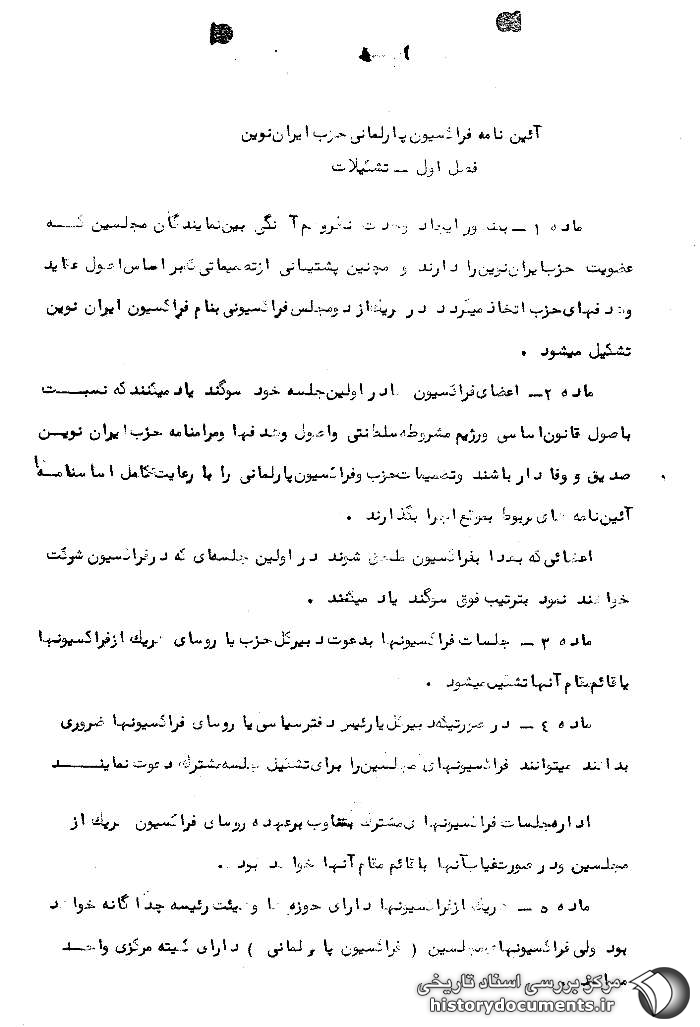 آئین نامه فراکسیون پارلمانی حزب ایران نوین
فصل اول ــ تشکیلات
ماده ۱ ــ بمنظور ایجاد وحدت نظر و هم آهنگی بین نمایندگان مجلسین که
عضویت حزب ایران نوین را دارند و همچنین پشتیبانی از تصمیماتی که بر اساس اصول عقاید
وهدفهای حزب اتخاذ میگردد در هریک از دو مجلس فراکسیونی بنام فراکسیون ایران نوین
تشکیل میشود .
ماده ۲ــ اعضای فراکسیون ها در اولین جلسه خود سوگند یاد میکنند که نسبت
باصول قانون اساسی ورژیم مشروطه سلطنتی واصول وهدفها ومرامنامه حزب ایران نوین
صدیق و وفادار باشند وتصمیمات حزب وفراکسیون پارلمانی را با رعایت کامل اساسنامه
آئین نامه های مربوط بموقع اجرا بگذارند .
اعضائی که بعدا بفراکسیون ملحق شوند در اولین جلسه‌ای که در فراکسیون شرکت
خواهند نمود بترتیب فوق سوگند یاد میکنند .
ماده ۳ ــ جلسات فراکسیونها بدعوت دبیرکل حزب یا روسای هریک از فراکسیونها
یا قائم مقام آنها تشکیل میشود .
ماده ٤ ــ در صورتیکه دبیرکل یا رئیس دفتر سیاسی یا روسای فراکسیونها ضروری
بدانند میتوانند فراکسیونهای مجلسین را برای تشکیل جلسه مشترک دعوت نمایند
اداره جلسات فراکسیونهای مشترک بتناوب برعهده روسای فراکسیون هریک از
مجلسین ودر صورت غیاب آنها با قائم مقام آنها خواهد بود .
ماده ٥ ــ هریک از فراکسیونها دارای حوزه ها و هیئت رئیسه جداگانه خواهد
بود ولی فراکسیونهای مجلسین ( فراکسیون پارلمانی ) دارای کمیته مرکزی واحد
مرکز بررسی اسناد تاریخی
historydocuments.ir